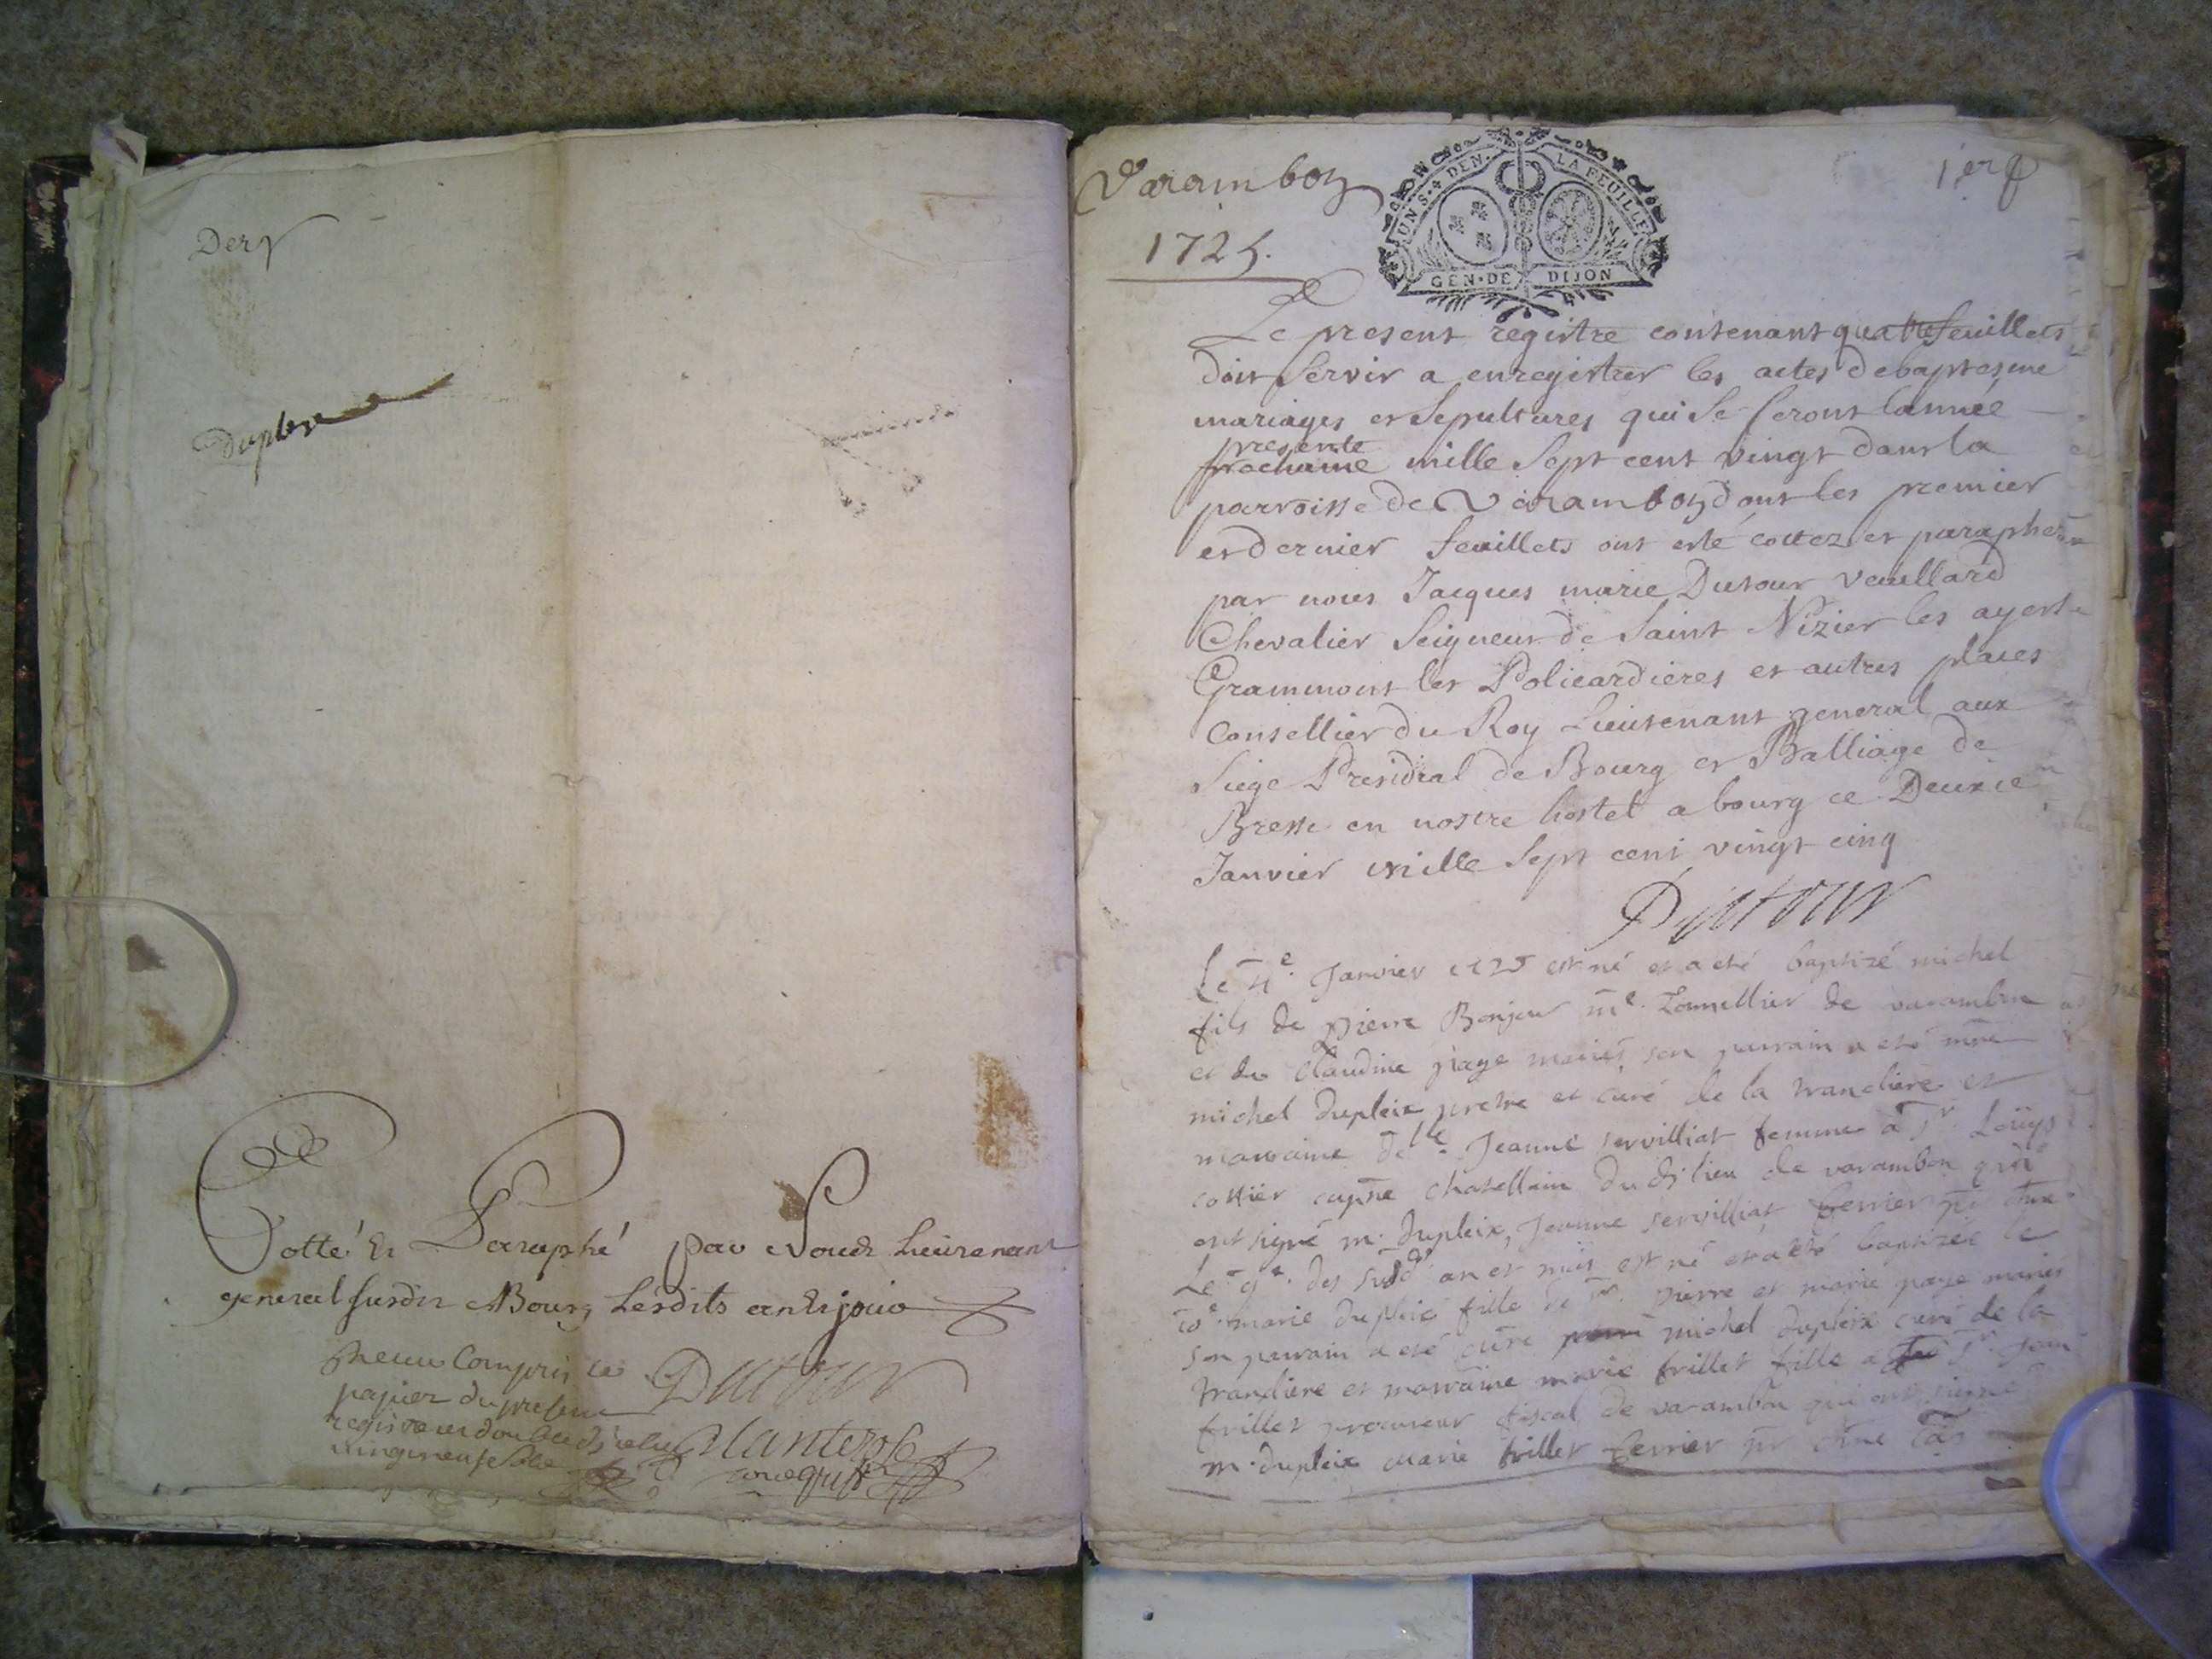 Der
Dupleix
Cotté & Paraphé par Nous Lieutenant
general susdit ABourg lesdits an & jour
Receu Compris le
papier du present
registre et double
Dutour
Varamboy
1er
1725.
UN S. 4 DEN. LA FEUILLE
GEN. DE DIJON
Le present registre contenant quatre feuillets
doit servir a enregistrer les actes de baptesme
mariages et sepultures qui se feront lannée
presente
prochaine mille sept cent vingt dans la
parroisse de Varamboy dont les premier
et dernier feuillets ont esté cottez et paraphez
par nous Jacques marie Dutour Veuillard
Chevalier seigneur de Saint Nizier les
Grammont les Policardieres et autres places
Consellier du Roy Lieutenant general aux
Siege Presidial de Bourg et Balliage de
Bresse en nostre hostel a bourg ce Deuxie
Janvier mille sept cent vingt cinq
Dutour
Le 4e. Janvier 1725 est né et a eté baptizé michel
fils de pierre Bonjour me. Tonnellier de varambon
et de Claudine paye mariés son parrain a eté
michel dupleix pretre et curé de la tranclière et
marraine dlle. Jeanne servilliat femme a Sr. Loüys
cottier chatellain dudt lieu de varambon qui
ont signé m. Dupleix, Jeanne servilliat Perrier
Le 9e. des susdt an et mois est né et a eté baptizée
marie dupleix fille de Sr. pierre et marie paye mariés
son parrain a eté michel dupleix curé de la
tranclière et marraine marie frillet fille a Sr. Jean
frillet procureur fiscal de varambon qui ont signé
m. dupleix marie frillet Perrier